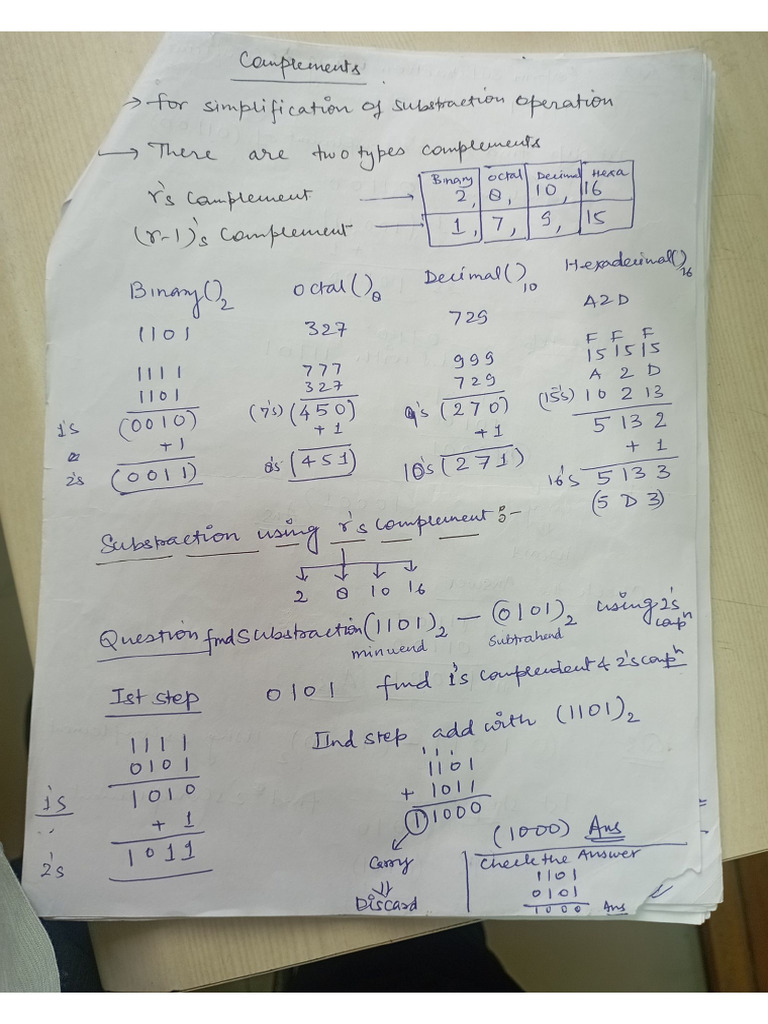 Complements
→ for simplification of substraction operation
→ There are two types complements
Binary Octal Decimal Hexa
r's complement → 2, 8, 10, 16
(r-1)'s complement → 1, 7, 9, 15
Binary()2 Octal()8 Decimal()10 Hexadecimal()16
1101 327 729 A2D
F F F
1111 777 999 15 15 15
1101 327 729 A 2 D
1's (0010) (7's) (450) 9's (270) (15's) 10 2 13
+1 +1 +1 5 13 2
2's (0011) 8's (451) 10's (271) + 1
16's 5 13 3
(5 D 3)
Substraction using r's complement :-
2 8 10 16
Question find Substraction (1101)2 — (0101)2 using 2's compn
minuend Subtrahend
Ist step 0101 find 1's complendent & 2's compn
IInd step add with (1101)2
1111
0101
1's 1010
+ 1
2's 1011
1 1 1
1101
+ 1011
1 1000
Carry
Discard
(1000) Ans
Check the Answer
1101
0101
1000 Ans